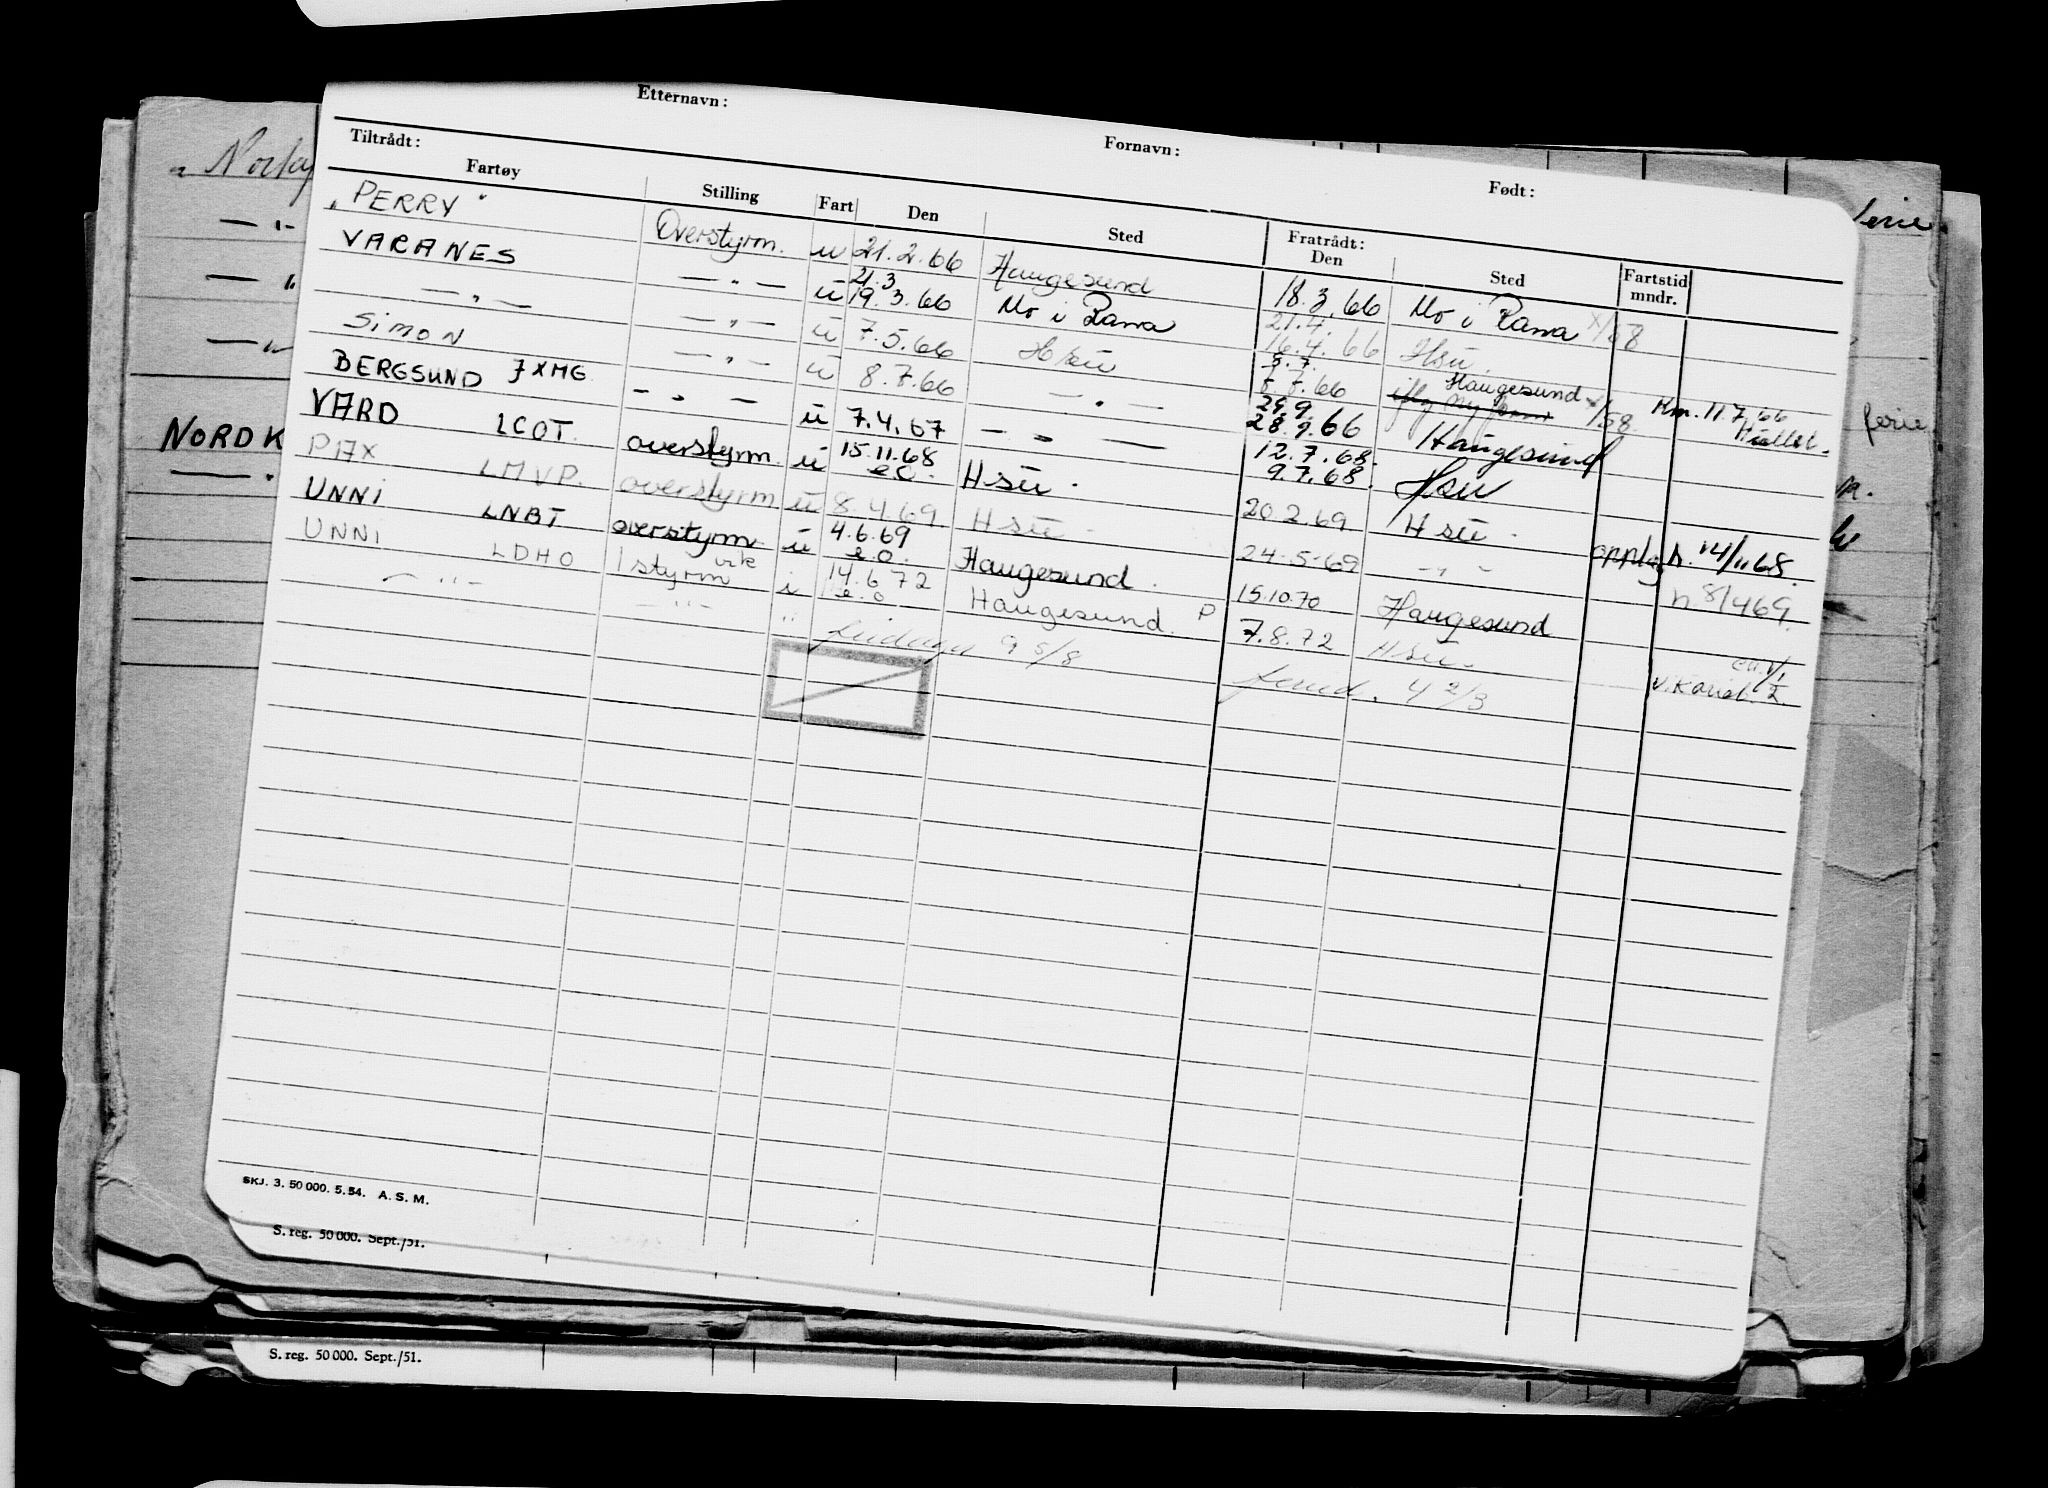 Etternavn: Fornavn: Født:
Tiltrådt: Fratrådt:
Fartøy Stilling Fart Den Sted Den Sted Fartstid mndr.
„PERRY" Overstyrm. u 21.2.66 Haugesund 18.3.66 Mo i Rana
VARANES — " — u 21.3 19.3.66 Mo i Rana 21.4. 16.4.66 Hsu. 1/58
— " — — " — u 7.5.66 Hsu 5.7. 7.7.66 Haugesund
SIMON — " — u 8.7.66 — " — 29.9. 28.9.66 Haugesund 1/58 Hm. 11.7.66
BERGSUND JXMG — " — u 7.4.67 — " — 12.7.68. 9.7.68. Hsu
VARD LCOT. overstyrm u 15.11.68 e.o. Hsu. 20.2.69 Hsu. opplag h. 14/11 68.
PAX LMVP. overstyrm u 8.4.69. Hsu - 24-5-69 — " — h. 8/4 69.
UNNI LNBT overstyrm u 4.6.69 e.o. Haugesund. 15.10.70 Haugesund
UNNI LDHO 1 styrm vik i 14.6.72 e.o Haugesund. P 7.8.72 Hsu.
— " — — " — " 9 5/8 4 2/3
SKJ. 3. 50 000. 5.54. A. S. M.
S. reg. 50 000. Sept./51.
S. reg. 50 000. Sept./51.
NORD K
ferie
ferie